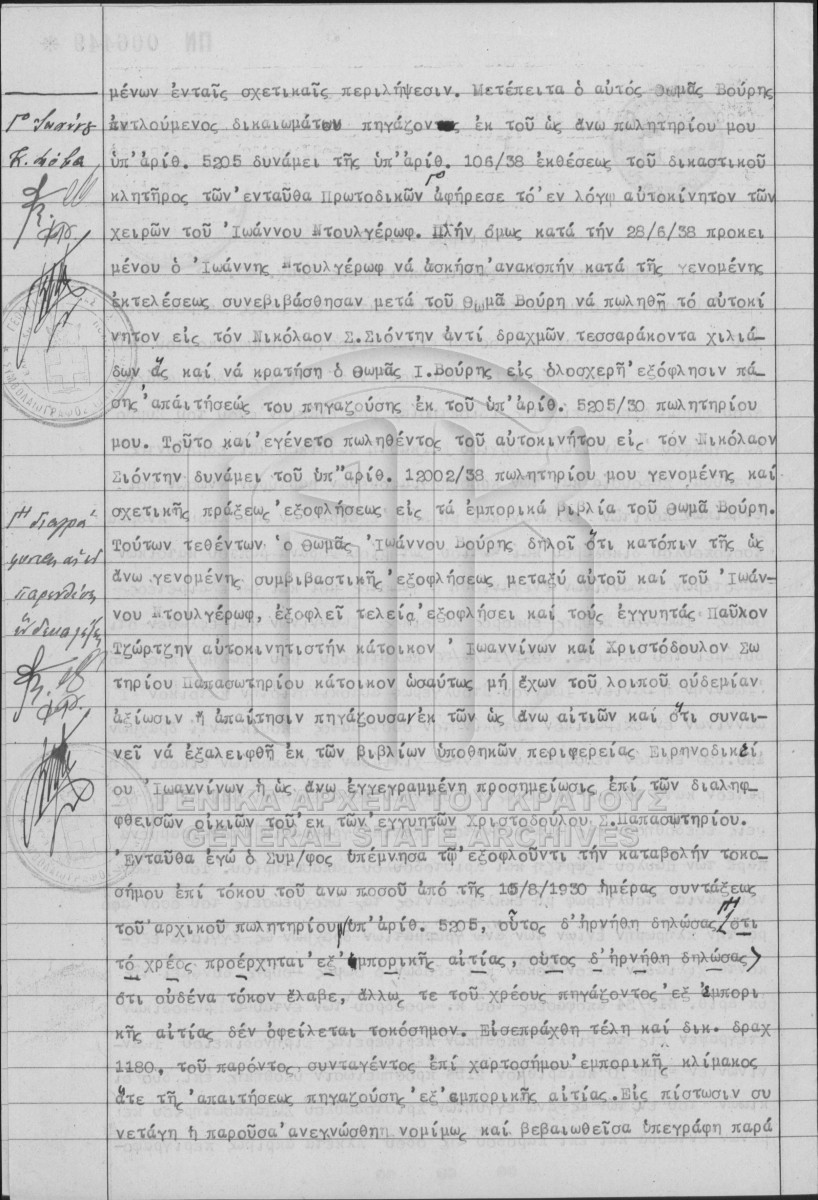 μένων ἐνταῖς σχετικαῖς περιλήψεσιν. Μετέπειτα ὁ αὐτός Θωμᾶς Βούρης
ἀντλούμενος δικαιωμάτων πηγάζοντος ἐκ τοῦ ὡς ἄνω πωλητηρίου μου
ὑπ'ἀρίθ. 5205 δυνάμει τῆς ὑπ'ἀρίθ. 106/38 ἐκθέσεως τοῦ δικαστικοῦ
κλητῆρος τῶν ἐνταῦθα Πρωτοδικῶν Γο ἀφήρεσε τό ἐν λόγῳ αὐτοκίνητον τῶν
χειρῶν τοῦ Ἰωάννου Ντουλγέρωφ. Πλήν ὅμως κατά τήν 28/6/38 προκει
μένου ὁ Ἰωάννης Ντουλγέρωφ νά ἀσκήση ἀνακοπήν κατά τῆς γενομένης
ἐκτελέσεως συνεβιβάσθησαν μετά τοῦ Θωμᾶ Βούρη νά πωληθῆ τό αὐτοκί
νητον εἰς τόν Νικόλαον Σ.Σιόντην ἀντί δραχμῶν τεσσαράκοντα χιλιά
δων ἅς καί νά κρατήση ὁ Θωμᾶς Ι.Βούρης εἰς ὁλοσχερῆ ἐξόφλησιν πά-
σης ἀπαιτήσεώς του πηγαζούσης ἐκ τοῦ ὑπ'ἀρίθ. 5205/30 πωλητηρίου
μου. Τοῦτο καί ἐγένετο πωληθέντος τοῦ αὐτοκινήτου εἰς τόν Νικόλαον
Σιόντην δυνάμει τοῦ ὑπ'ἀρίθ. 12002/38 πωλητηρίου μου γενομένης καί
σχετικῆς πράξεως ἐξοφλήσεως εἰς τά ἐμπορικά βιβλία τοῦ Θωμᾶ Βούρη.
Τούτων τεθέντων ὁ Θωμᾶς Ἰωάννου Βούρης δηλοῖ ὅτι κατόπιν τῆς ὡς
ἄνω γενομένης συμβιβαστικῆς ἐξοφλήσεως μεταξύ αὐτοῦ καί τοῦ Ἰωάν-
νου Ντουλγέρωφ, ἐξοφλεῖ τελείᾳ ἐξοφλήσει καί τούς ἐγγυητάς Παῦλον
Τζώρτζην αὐτοκινητιστήν κάτοικον Ἰωαννίνων καί Χριστόδουλον Σω
τηρίου Παπασωτηρίου κάτοικον ὡσαύτως μή ἔχων τοῦ λοιποῦ οὐδεμίαν
ἀξίωσιν ἤ ἀπαίτησιν πηγάζουσαν ἐκ τῶν ὡς ἄνω αἰτιῶν καί ὅτι συναι-
νεῖ νά ἐξαλειφθῆ ἐκ τῶν βιβλίων ὑποθηκῶν περιφερείας Εἰρηνοδικεί
ου Ἰωαννίνων ἡ ὡς ἄνω ἐγγεγραμμένη προσημείωσις ἐπί τῶν διαληφ-
φθεισῶν οἰκιῶν τοῦ ἐκ τῶν ἐγγυητῶν Χριστοδούλου Σ.Παπασωτηρίου.
Ἐνταῦθα ἐγώ ὁ Συμ/φος ὑπέμνησα τῷ ἐξοφλοῦντι τήν καταβολήν τοκο-
σήμου ἐπί τόκου τοῦ ἄνω ποσοῦ ἀπό τῆς 16/8/1930 ἡμέρας συντάξεως
τοῦ ἀρχικοῦ πωλητηρίου ὑπ'ἀρίθ. 5205, οὗτος δ'ἠρνήθη δηλώσας ὅτι
τό χρέος προέρχηται ἐξ ἐμπορικῆς αἰτίας, οὗτος δ'ἠρνήθη δηλώσας
ὅτι οὐδένα τόκον ἔλαβε, ἄλλως τε τοῦ χρέους πηγάζοντος ἐξ ἐμπορι
κῆς αἰτίας δέν ὀφείλεται τοκόσημον. Εἰσεπράχθη τέλη καί δικ. δραχ
1180, τοῦ παρόντος συνταγέντος ἐπί χαρτοσήμου ἐμπορικῆς κλίμακος
ἅτε τῆς ἀπαιτήσεως πηγαζούσης ἐξ ἐμπορικῆς αἰτίας. Εἰς πίστωσιν συ
νετάγη ἡ παροῦσα ἀνεγνώσθη νομίμως καί βεβαιωθεῖσα ὑπεγράφη παρά
Γο Ἰωάννης
Γη διαγρά
παρενθέσει
ΓΕΝΙΚΑ ΑΡΧΕΙΑ ΤΟΥ ΚΡΑΤΟΥΣ
GENERAL STATE ARCHIVES